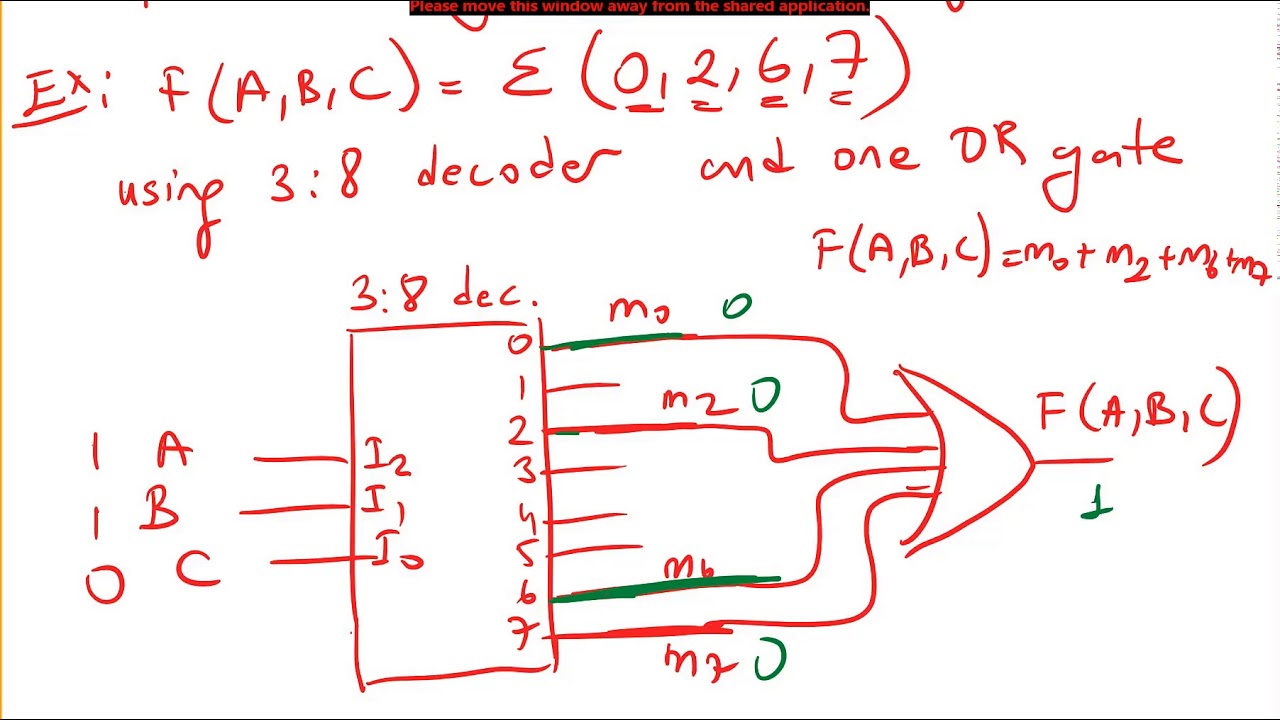 Please move this window away from the shared application.
Ex: F(A,B,C) = Σ(0,2,6,7)
using 3:8 decoder and one OR gate
F(A,B,C)=m₀+m₂+m₆+m₇
3:8 dec.
0 m₀ 0
1
2 m₂ 0
3
4
5
6 m₆
7 m₇ 0
1 A I₂
1 B I₁
0 C I₀
F(A,B,C)
1